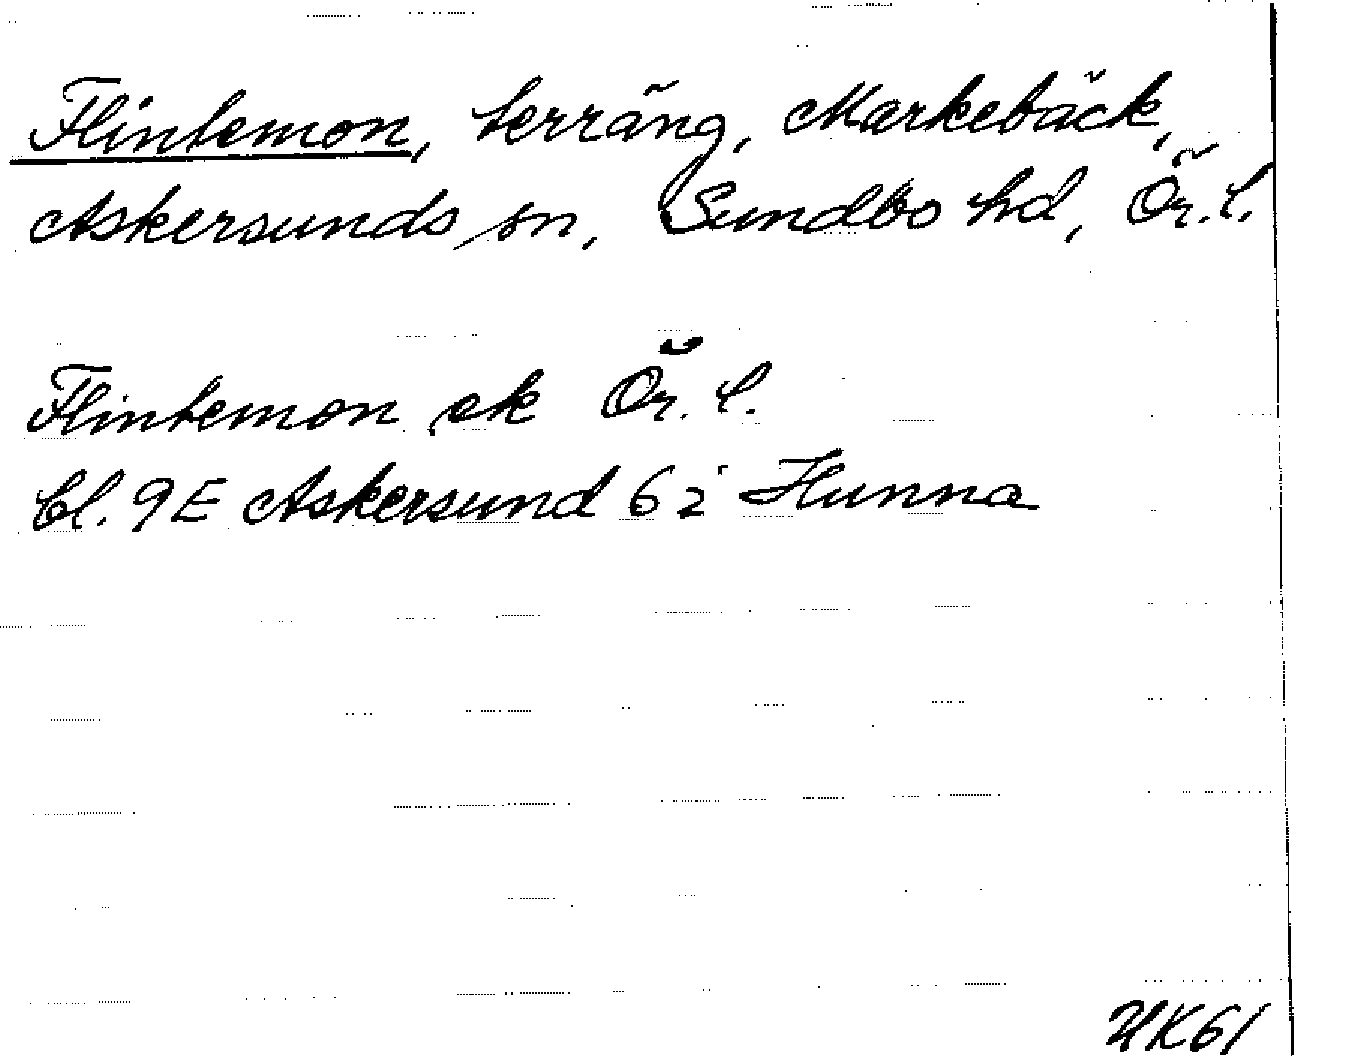 Flintemon, terräng, Markebäck,
Askersunds sn, Sundbo hd, Ör. l.
Flintemon ek Ör. l.
bl. 9E Askersund 6i Hunna
UK61